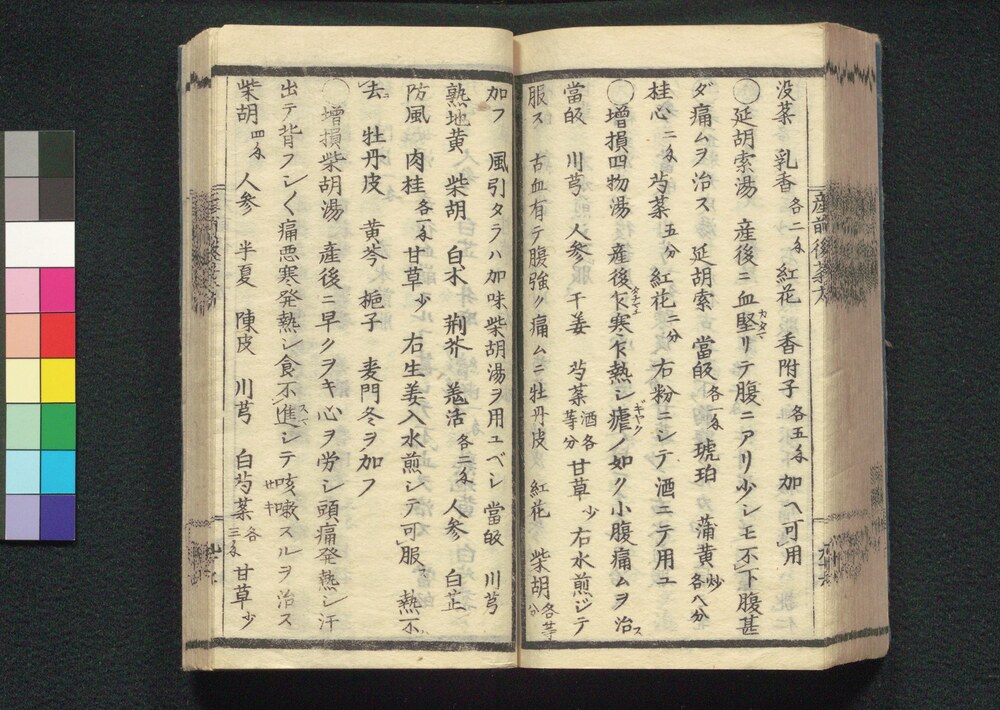 没薬　乳香各二匁　紅花　香附子各五匁　加ヘ可用
◯延胡索湯　産後ニ血堅リテ腹ニアリ少シモ不下腹甚
ダ痛ムヲ治ス　延胡索　當皈各一匁　琥珀　蒲黄炒各八分
桂心二匁　芍薬五分　紅花二分　右粉ニシテ酒ニテ用ユ
◯増損四物湯　産後乍寒乍熱シ瘧ノ如ク小腹痛ムヲ治ス
當皈　川芎　人参　干姜　芍薬酒各等分　甘草少　右水煎ジテ
服ス　古血有テ腹強ク痛ムニ牡丹皮　紅花　柴胡各等分
加フ　風引タラハ加味柴胡湯ヲ用ユベシ　當皈　川芎
熟地黄　柴胡　白朮　荊芥　羗活各二匁　人参　白芷
防風　肉桂各一匁　甘草少　右生姜入水煎シテ可服　熱不
去ニ　牡丹皮　黄芩　梔子　麦門冬ヲ加フ
◯増損柴胡湯　産後ニ早クヲキ心ヲ労シ頭痛発熱シ汗
出テ背フシ〱痛悪寒発熱シ食不進シテ咳嗽スルヲ治ス
柴胡四匁　人参　半夏　陳皮　川芎　白芍薬各三匁　甘草少
産前後薬方